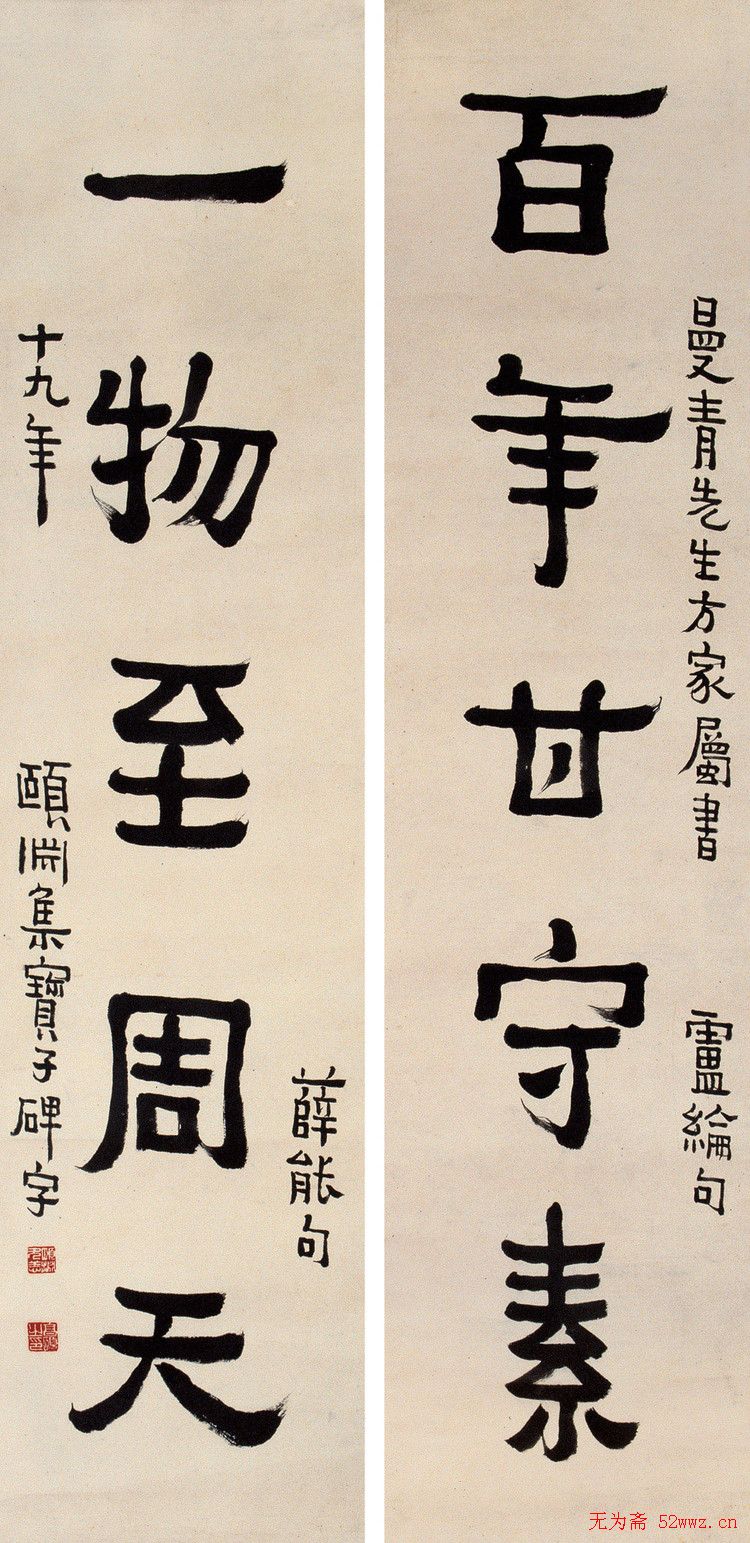 百年甘守素
曼青先生方家屬書
盧綸句
一物至周天
薛能句
十九年
頤淵集寶子碑字
无为斋 52wwz.cn